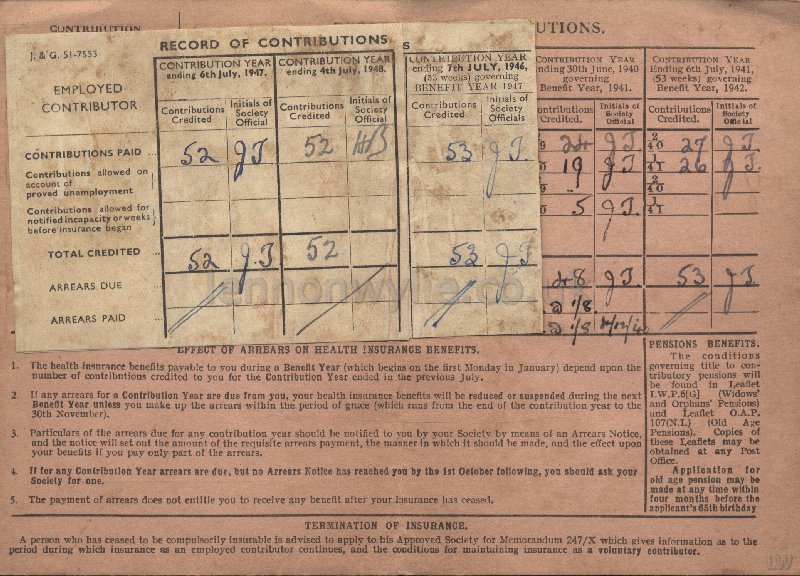 CONTRIBUTION
UTIONS.
J. & G. 51-7553
RECORD OF CONTRIBUTIONS
S
EMPLOYED
CONTRIBUTOR
CONTRIBUTION YEAR
ending 6th July, 1947.
CONTRIBUTION YEAR
ending 4th July, 1948.
CONTRIBUTION YEAR
ending 7th JULY, 1946,
(53 weeks) governing
BENEFIT YEAR 1947
CONTRIBUTION YEAR
nding 30th June, 1940
governing
Benefit Year, 1941.
CONTRIBUTION YEAR
Ending 6th July, 1941,
(53 weeks) governing
Benefit Year, 1942.
Contributions
Credited
Initials of
Society
Official
Contributions
Credited
Initials of
Society
Official
Contributions
Credited
Initials of
Society
Officials
ontributions
Credited.
Initials of
Society
Official
Contributions
Credited.
Initials of
Society
Official
CONTRIBUTIONS PAID ... 52 J.T 52 HB 53 J.T. 24 J.T. 2/40 27 J.T.
Contributions allowed on
account of
proved unemployment
J.T. 19 J.T. 1/41 26 J.T.
2/40
Contributions allowed for
notified incapacity or weeks
before insurance began
5 J.T. 1/41
TOTAL CREDITED ... 52 J.T 52 53 J.T 48 J.T. 53 J.T.
ARREARS DUE ... 1/8.
ARREARS PAID ... 1/8
lennonwylie.co
EFFECT OF ARREARS ON HEALTH INSURANCE BENEFITS.
1. The health insurance benefits payable to you during a Benefit Year (which begins on the first Monday in January) depend upon the
number of contributions credited to you for the Contribution Year ended in the previous July.
2. If any arrears for a Contribution Year are due from you, your health insurance benefits will be reduced or suspended during the next
Benefit Year unless you make up the arrears within the period of grace (which runs from the end of the contribution year to the
30th November).
3. Particulars of the arrears due for any contribution year should be notified to you by your Society by means of an Arrears Notice,
and the notice will set out the amount of the requisite arrears payment, the manner in which it should be made, and the effect upon
your benefits if you pay only part of the arrears.
4. If for any Contribution Year arrears are due, but no Arrears Notice has reached you by the 1st October following, you should ask your
Society for one.
5. The payment of arrears does not entitle you to receive any benefit after your insurance has ceased.
PENSIONS BENEFITS.
The conditions
governing title to con-
tributory pensions will
be found in Leaflet
I.W.P.6[G] (Widows'
and Orphans' Pensions)
and Leaflet O.A.P.
107(N.I.) (Old Age
Pensions). Copies of
these Leaflets may be
obtained at any Post
Office.
Application for
old age pension may be
made at any time within
four months before the
applicant's 65th birthday
TERMINATION OF INSURANCE.
A person who has ceased to be compulsorily insurable is advised to apply to his Approved Society for Memorandum 247/X which gives information as to the
period during which insurance as an employed contributor continues, and the conditions for maintaining insurance as a voluntary contributor.
LW